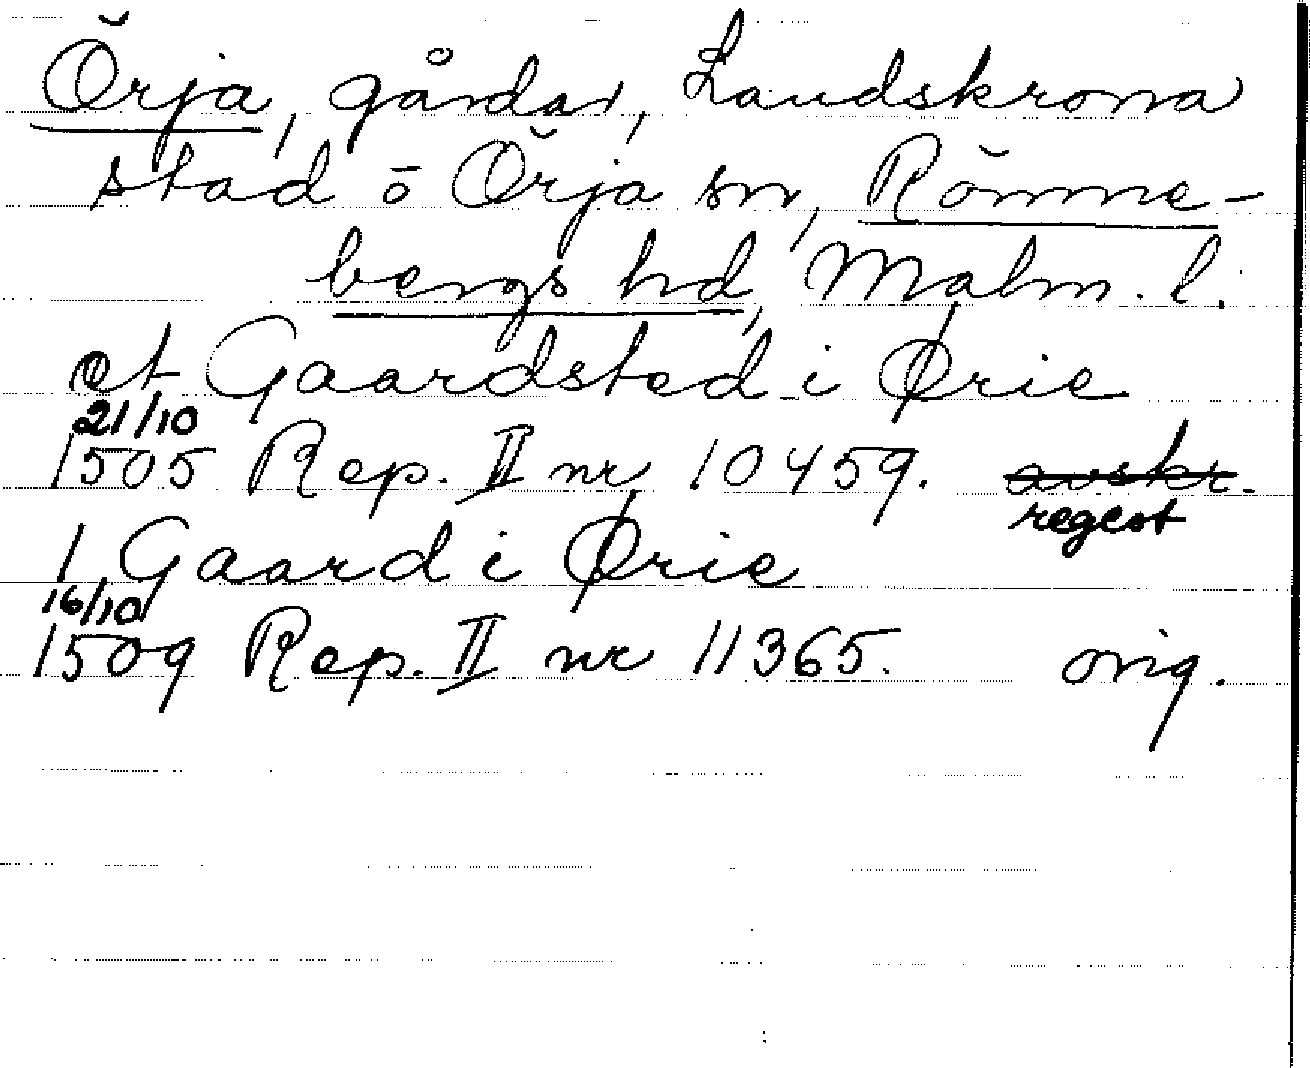 Örja, gårdar, Landskrona
stad o Örja sn, Rönne-
bergs hd, Malm. l.
et Gaardsted i Ørie
21/10
1505 Rep. II nr 10459. avskr.
regest
1 Gaard i Ørie
16/10
1509 Rep. II nr 11365. orig.